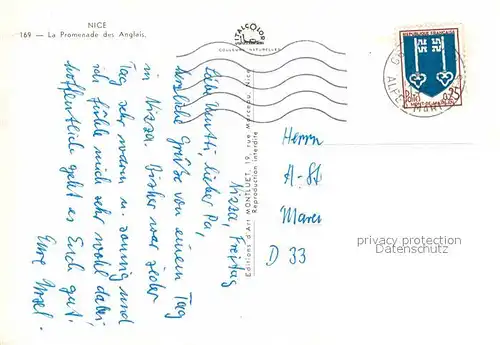 NICE
169 — La Promenade des Anglais.
ITALCOLOR
COULEURS NATURELLES
REPUBLIQUE FRANÇAISE
0,25
MONT-DE-MARSAN
Editions d'Art MONTLUET, 19, rue Marceau, Nice
Reproduction interdite
Nizza, Freitag
Liebe Mutti, lieber Pa,
herzliche Grüße von einem Tag
in Nizza. Bisher war jeder
Tag sehr warm u. sonnig und
ich fühle mich sehr wohl dabei,
hoffentlich geht es Euch gut.
Eure
Herrn
A-St
Marei
D 33
privacy protection
Datenschutz